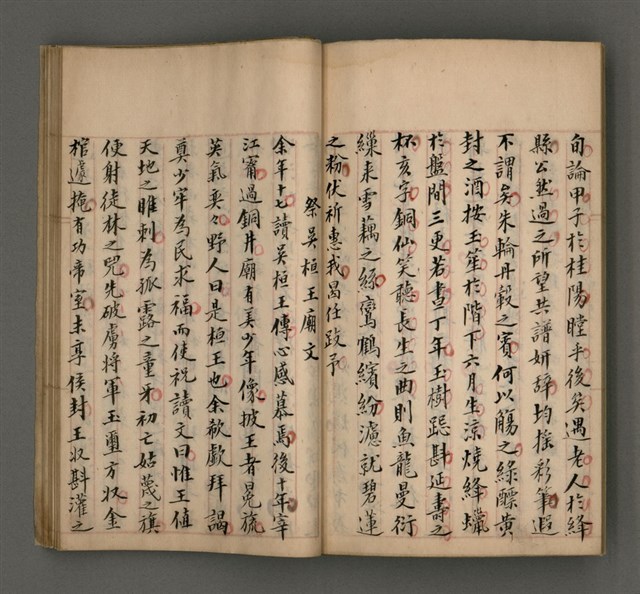 旬論甲子於桂陽瞠乎後矣遇老人於絳
縣公然過之所望共譜妍辭均搖彩筆遐
不謂矣朱輪丹轂之賓何以觴之綠醽黃
封之酒按玉笙於階下六月生涼燒絳蠟
於盤間三更若晝丁年玉樹跽斟延壽之
杯亥字銅仙笑聽長生之曲則魚龍曼衍
繅來雪藕之絲鸞鶴繽紛濾就碧蓮
之粉伏祈惠我曷任跂予
祭吳桓王廟文
余年十七讀吳桓王傳心感慕焉後十年宰
江甯過銅井廟有美少年像披王者冕旒
英氣奕々野人曰是桓王也余欷歔拜謁
奠少牢為民求福而使祝讀文曰惟王值
天地之睢刺為孤露之童牙初亡姑蔑之旗
便射徒林之兕先破虜將軍玉璽方收金
棺遽掩有功帝室未享侯封王收斟灌之